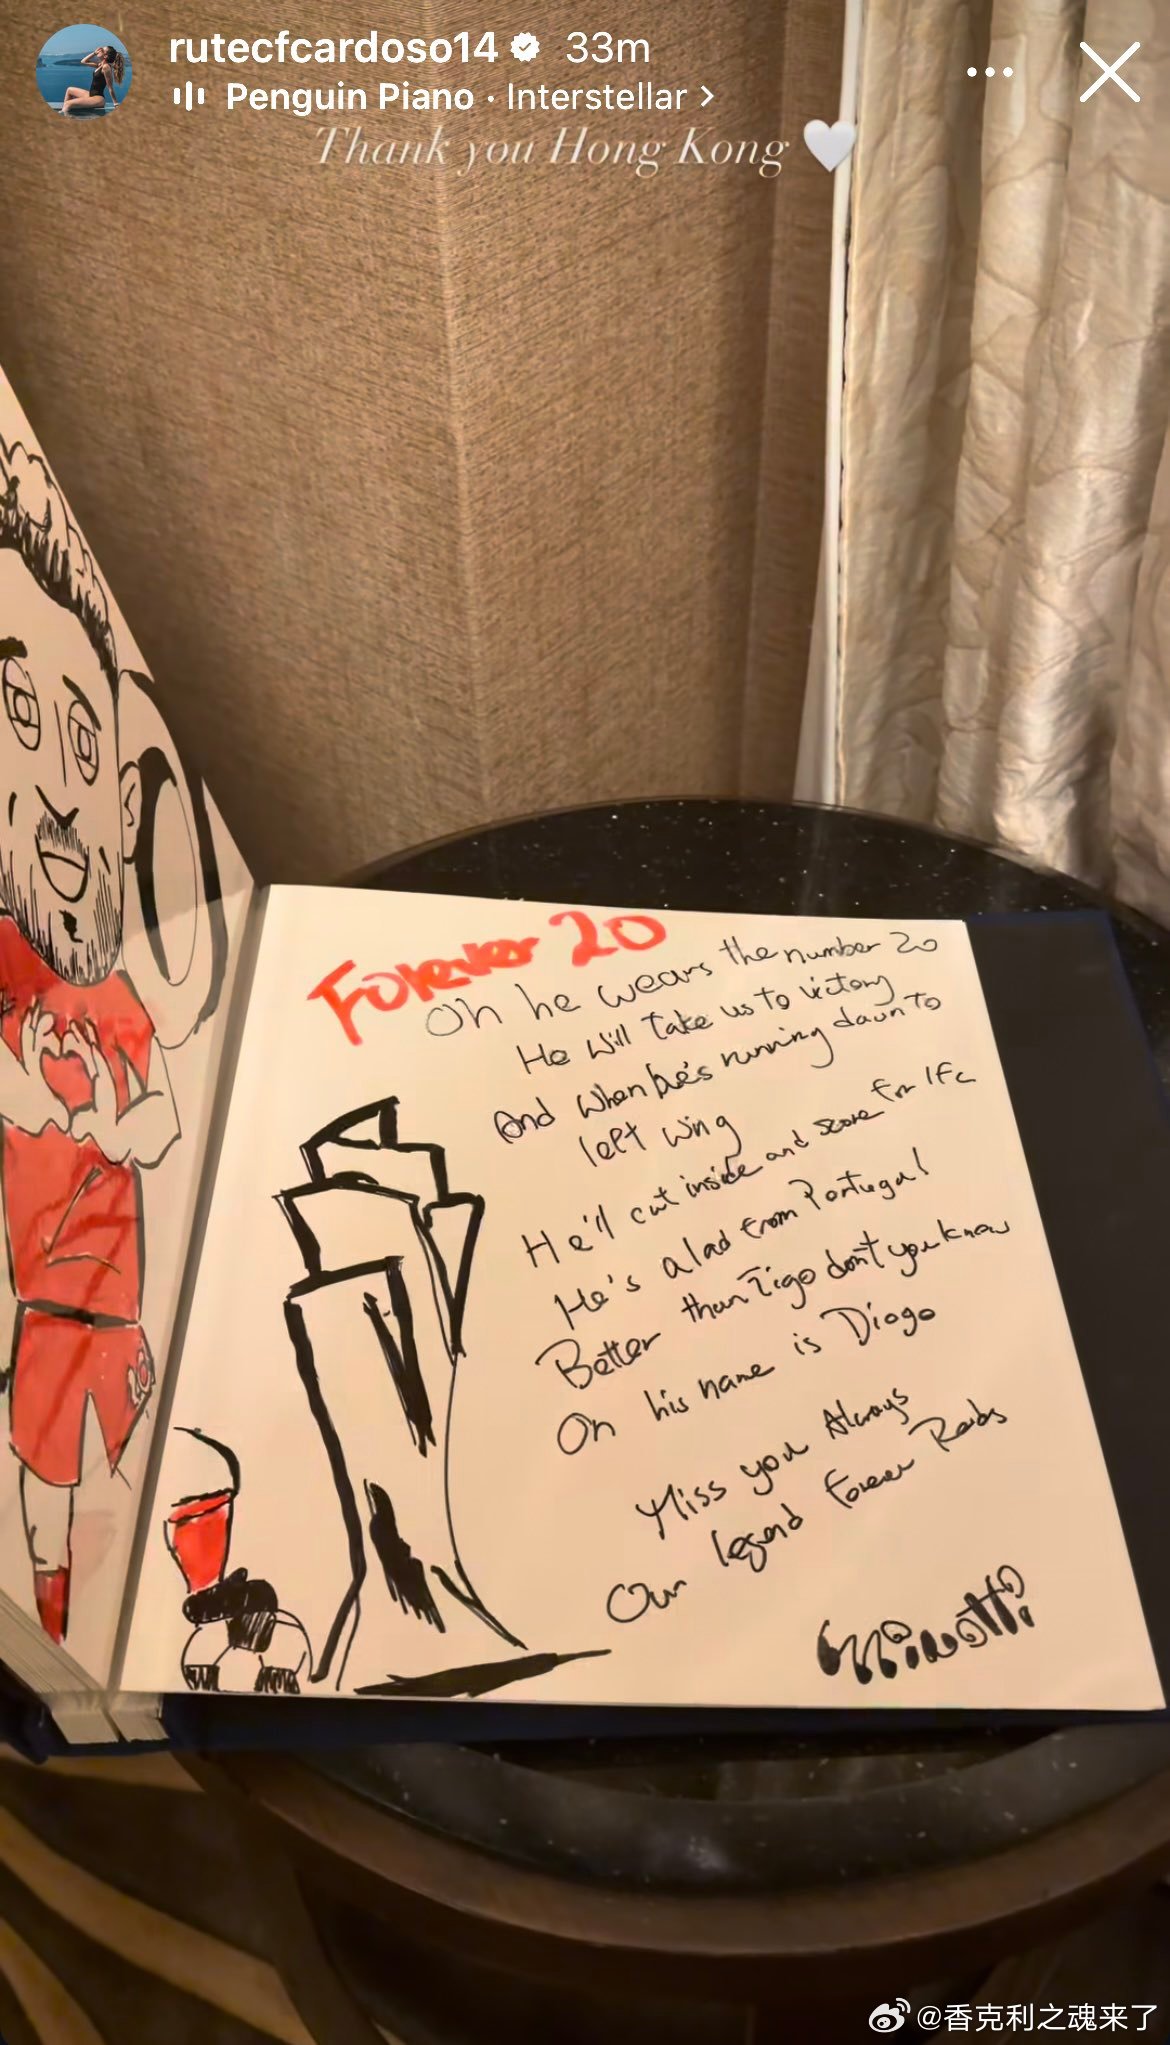 rutecfcardoso14 33m
Penguin Piano · Interstellar >
Thank you Hong Kong
Forever 20
Oh he wears the number 20
He will take us to victory
And when he's running down to
left wing
He'll cut inside and score for lfc
He's a lad from Portugal
Better than Figo don't you know
Oh his name is Diogo
Miss you Always
Our legend Forever Reds
@香克利之魂来了